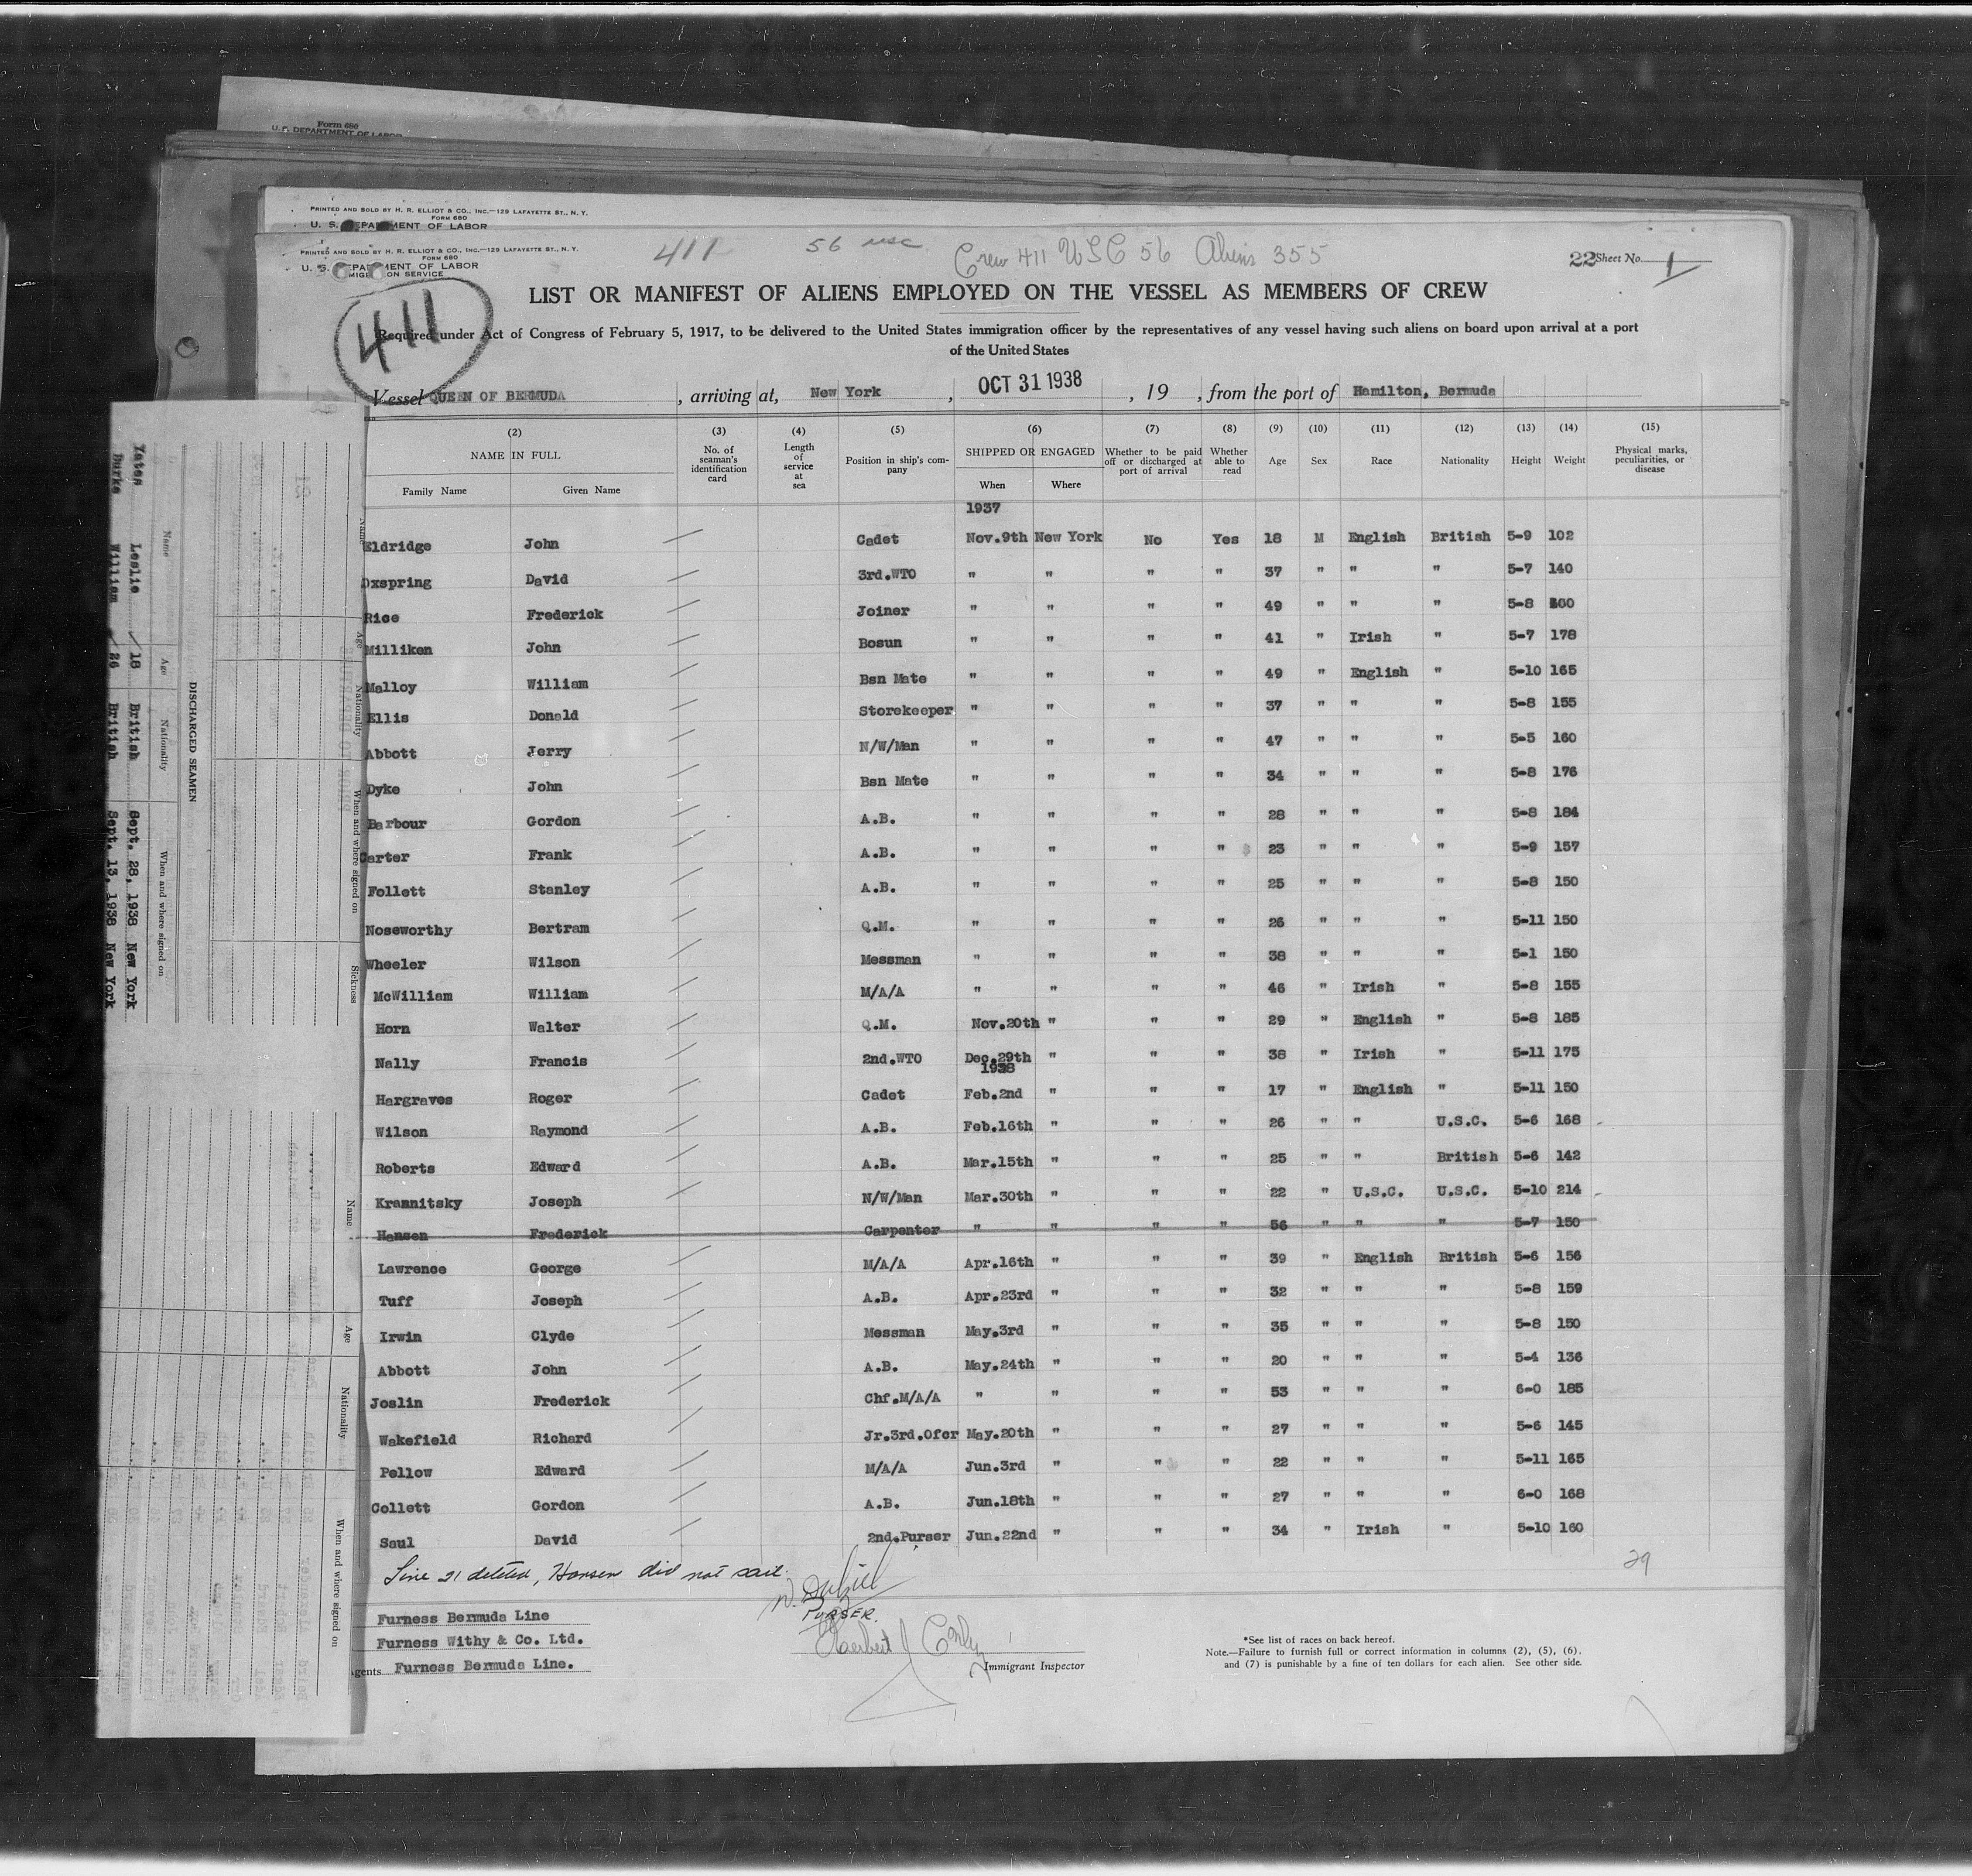 Form 680
U. S. DEPARTMENT OF LABOR
PRINTED AND SOLD BY H. R. ELLIOT & CO., INC.—129 LAFAYETTE ST., N. Y.
FORM 680
U. S. DEPARTMENT OF LABOR
PRINTED AND SOLD BY H. R. ELLIOT & CO., INC.—129 LAFAYETTE ST., N. Y.
FORM 680
U. S. DEPARTMENT OF LABOR
IMMIGRATION SERVICE
411 56 usc Crew 411 USC 56 Aliens 355
22 Sheet No. 1
411
LIST OR MANIFEST OF ALIENS EMPLOYED ON THE VESSEL AS MEMBERS OF CREW
Required under Act of Congress of February 5, 1917, to be delivered to the United States immigration officer by the representatives of any vessel having such aliens on board upon arrival at a port
of the United States
Vessel QUEEN OF BERMUDA, arriving at, New York, OCT 31 1938, 19 , from the port of Hamilton, Bermuda
(2) (3) (4) (5) (6) (7) (8) (9) (10) (11) (12) (13) (14) (15)
NAME IN FULL No. of seaman's identification card Length of service at sea Position in ship's company SHIPPED OR ENGAGED Whether to be paid off or discharged at port of arrival Whether able to read Age Sex Race Nationality Height Weight Physical marks, peculiarities, or disease
Family Name Given Name When Where
1937
Eldridge John Cadet Nov.9th New York No Yes 18 M English British 5-9 102
Oxspring David 3rd.WTO " " " " 37 " " " 5-7 140
Rice Frederick Joiner " " " " 49 " " " 5-8 160
Milliken John Bosun " " " " 41 " Irish " 5-7 178
Malloy William Bsn Mate " " " " 49 " English " 5-10 165
Ellis Donald Storekeeper " " " " 37 " " " 5-8 155
Abbott Jerry N/W/Man " " " " 47 " " " 5-5 160
Dyke John Bsn Mate " " " " 34 " " " 5-8 176
Barbour Gordon A.B. " " " " 28 " " " 5-8 184
Carter Frank A.B. " " " " 23 " " " 5-9 157
Follett Stanley A.B. " " " " 25 " " " 5-8 150
Noseworthy Bertram Q.M. " " " " 26 " " " 5-11 150
Wheeler Wilson Messman " " " " 38 " " " 5-1 150
McWilliam William M/A/A " " " " 46 " Irish " 5-8 155
Horn Walter Q.M. Nov.20th " " " 29 " English " 5-8 185
Nally Francis 2nd.WTO Dec.29th " " " 38 " Irish " 5-11 175
1938
Hargraves Roger Cadet Feb.2nd " " " 17 " English " 5-11 150
Wilson Raymond A.B. Feb.16th " " " 26 " " U.S.C. 5-6 168
Roberts Edward A.B. Mar.15th " " " 25 " " British 5-6 142
Kramnitsky Joseph N/W/Man Mar.30th " " " 22 " U.S.C. U.S.C. 5-10 214
Hansen Frederick Carpenter " " " " 56 " " " 5-7 150
Lawrence George M/A/A Apr.16th " " " 39 " English British 5-6 156
Tuff Joseph A.B. Apr.23rd " " " 32 " " " 5-8 159
Irwin Clyde Messman May.3rd " " " 35 " " " 5-8 150
Abbott John A.B. May.24th " " " 20 " " " 5-4 136
Joslin Frederick Chf.M/A/A " " " " 53 " " " 6-0 185
Wakefield Richard Jr.3rd.Ofcr May.20th " " " 27 " " " 5-6 145
Pellow Edward M/A/A Jun.3rd " " " 22 " " " 5-11 165
Collett Gordon A.B. Jun.18th " " " 27 " " " 6-0 168
Saul David 2nd.Purser Jun.22nd " " " 34 " Irish " 5-10 160
Line 21 deleted, Hansen did not sail.
29
PURSER.
Furness Bermuda Line
Furness Withy & Co. Ltd.
Agents Furness Bermuda Line.
Immigrant Inspector
*See list of races on back hereof.
Note.—Failure to furnish full or correct information in columns (2), (5), (6),
and (7) is punishable by a fine of ten dollars for each alien. See other side.
DISCHARGED SEAMEN
Name Age Nationality When and where signed on
Yates Leslie 18 British Sept. 28, 1938 New York
Burke William 26 British Sept. 13, 1938 New York
Name Age Nationality When and where signed on Sickness
Name Age Nationality When and where signed on